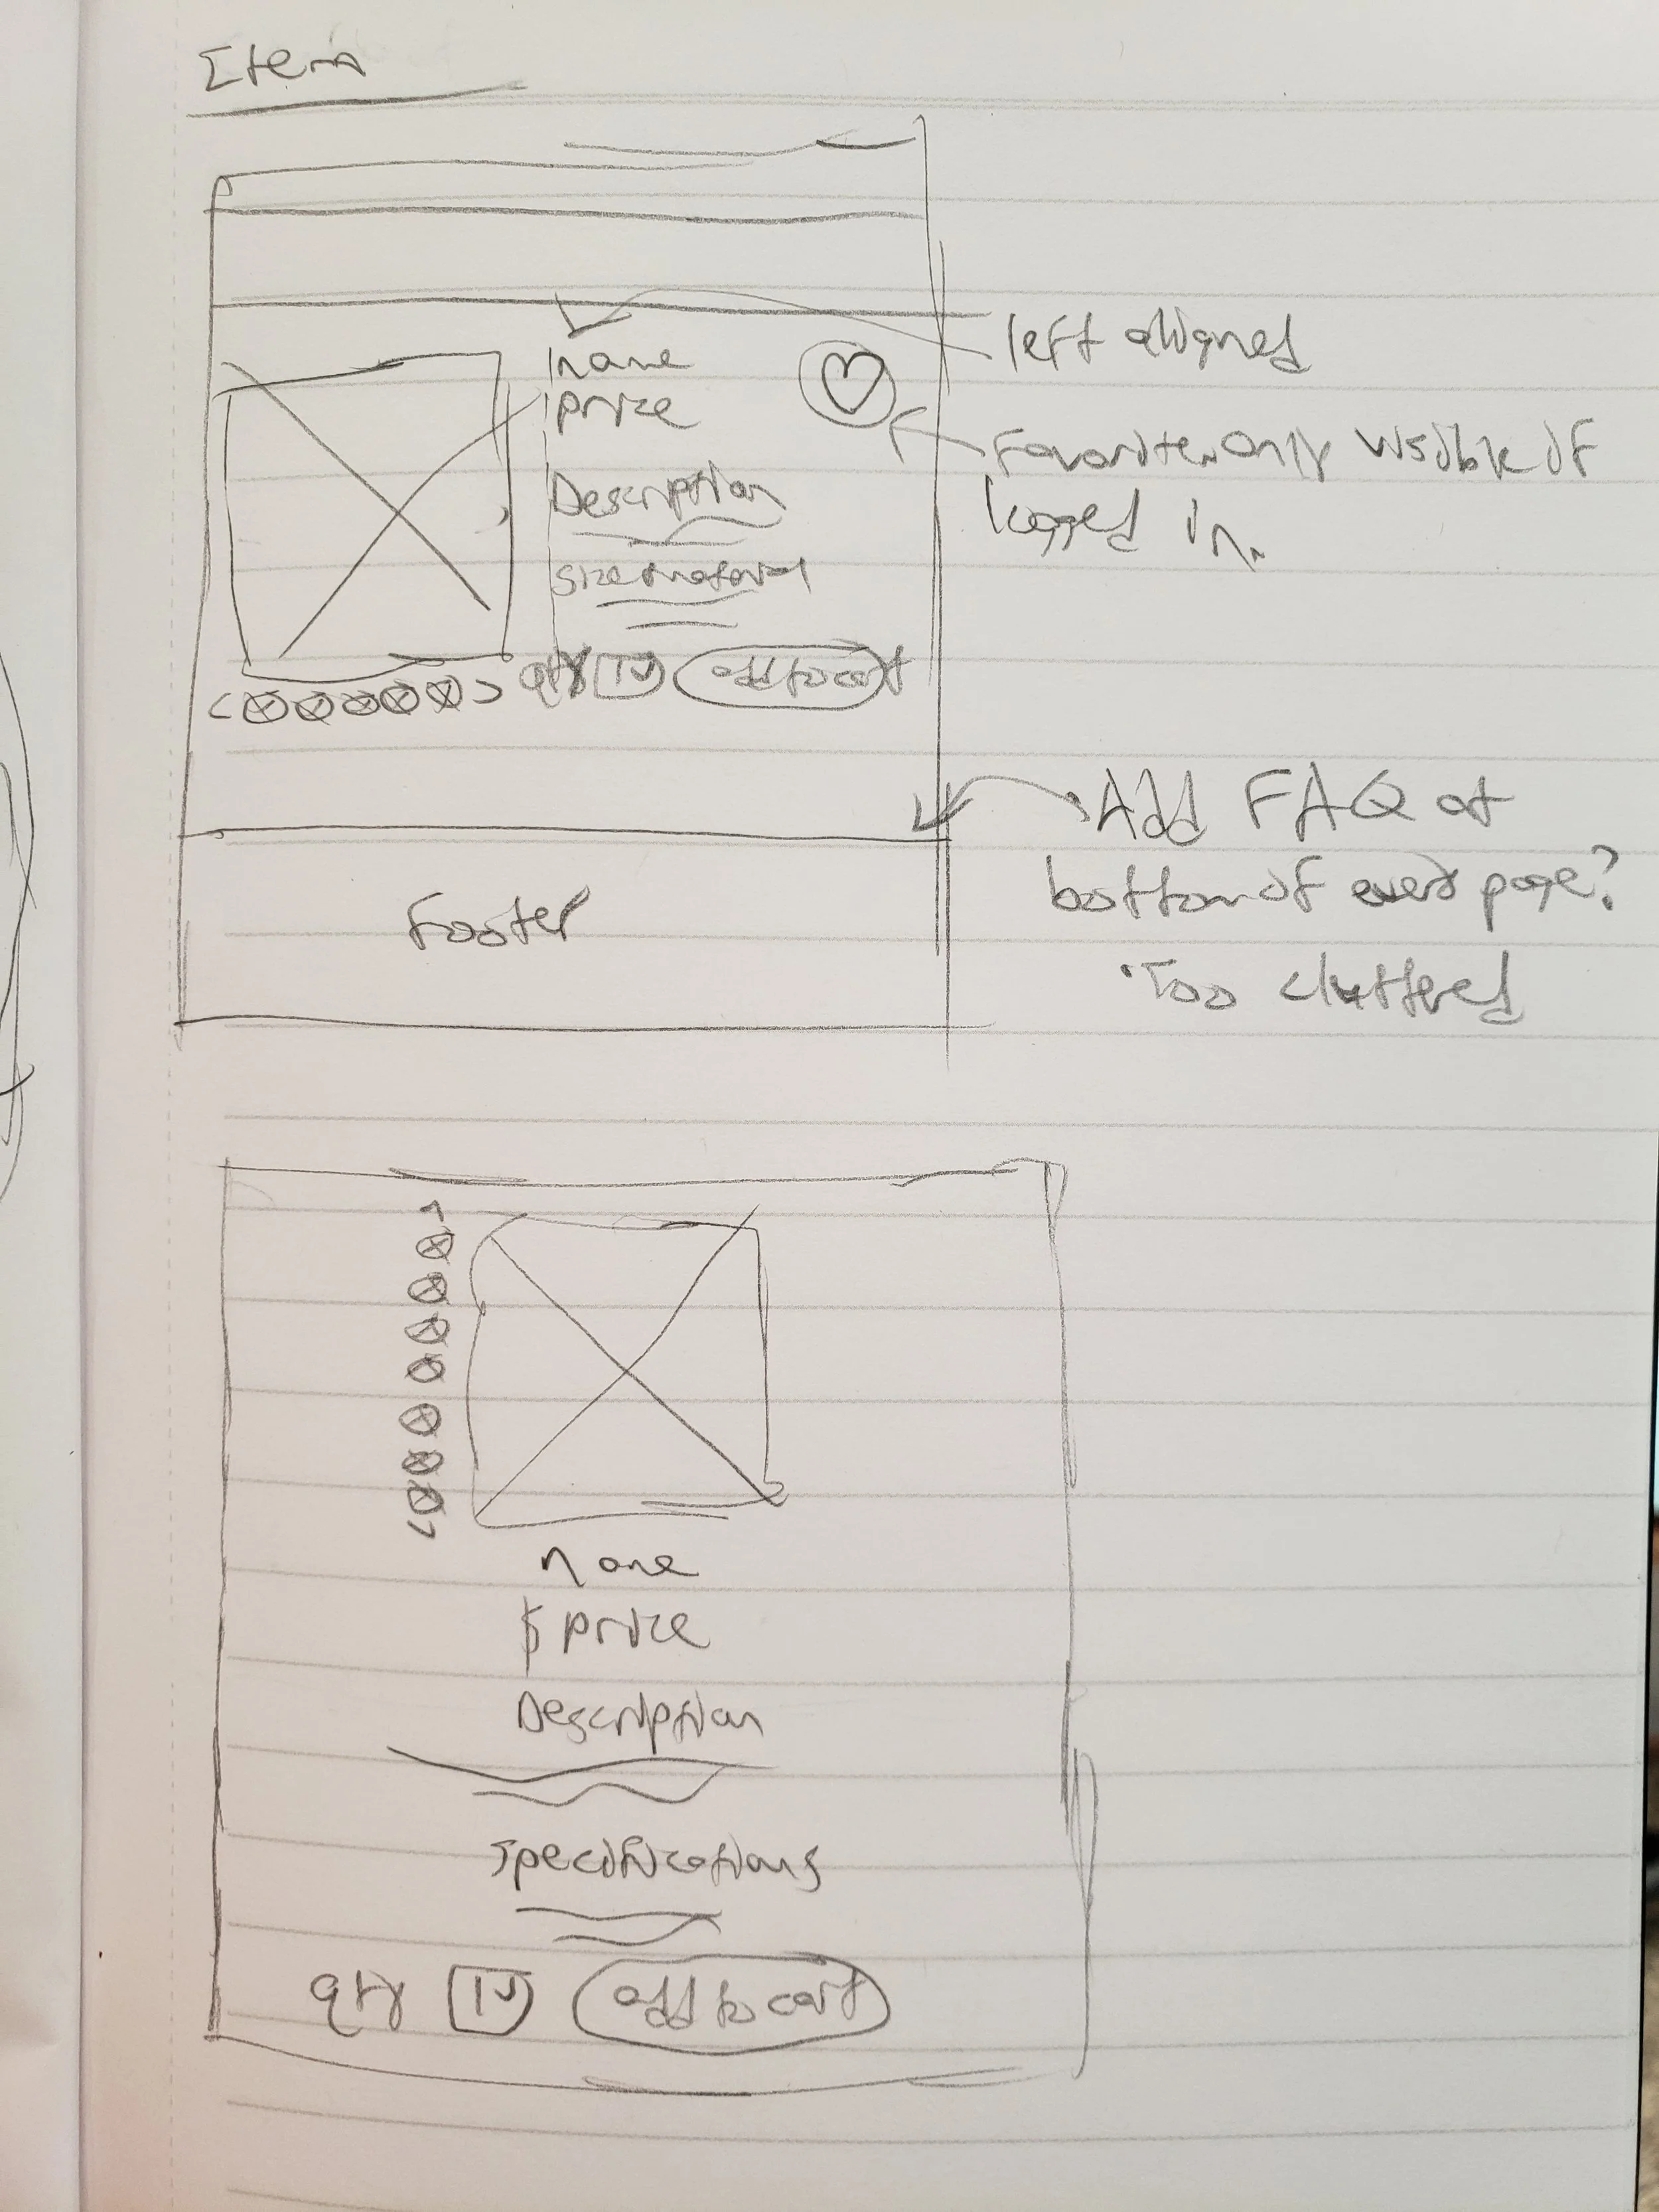 Item
name
left aligned
price
Favorite, only visible if
logged in.
Description
size material
qty 1 add to cart
Add FAQ at
bottom of every page?
Footer
Too cluttered
name
$ price
Description
Specifications
qty 1 add to cart